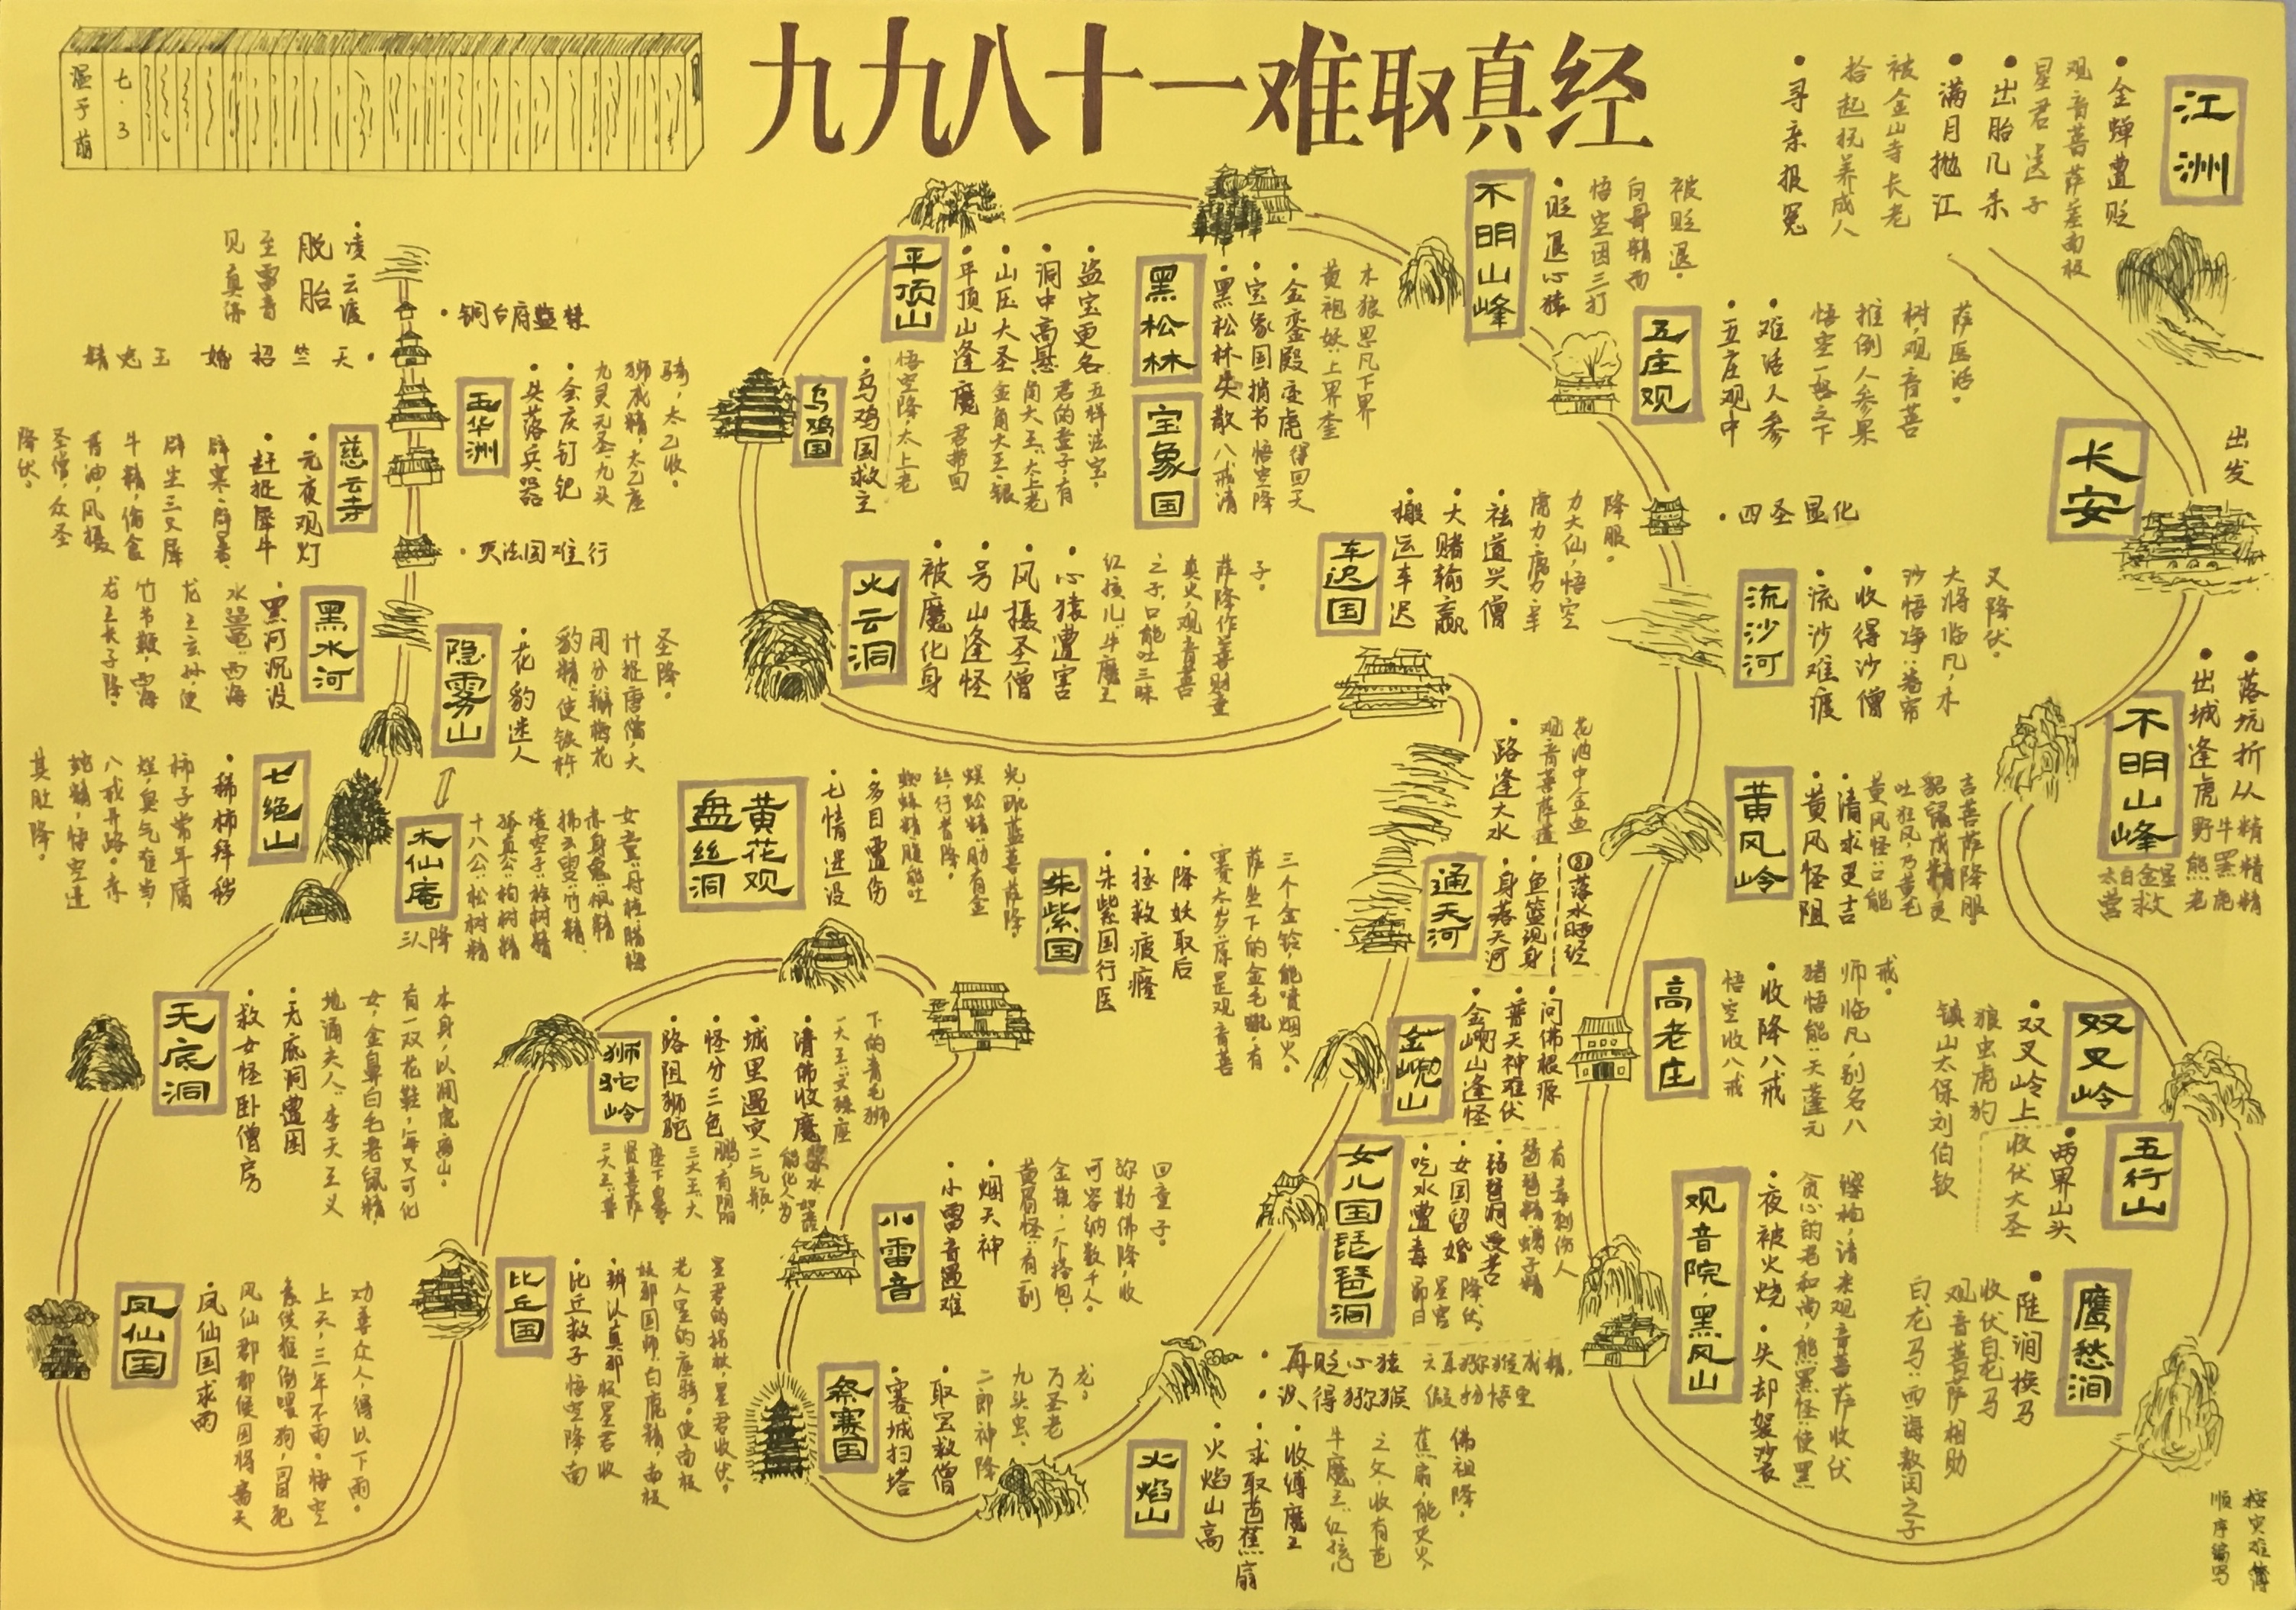 九九八十一难取真经
温子萌
七.3
江洲
·金蝉遭贬
观音菩萨差南极
星君送子
·出胎几杀
·满月抛江
被金山寺长老
拾起抚养成人
·寻亲报冤
长安
出发
不明山峰
·落坑折从
·出城逢虎
野牛精
熊黑精
老虎精
太白金星
营救
双叉岭
·双叉岭上
狼虫虎狗
镇山太保刘伯钦
五行山
·两界山头
收伏大圣
鹰愁涧
·陡涧换马
收伏白龙马
观音菩萨相助
白龙马:西海敖闰之子
按灾难簿
顺序编写
观音院·黑风山
·夜被火烧
·失却袈裟
贪心的老和尚,熊黑怪:使黑
缨枪,请来观音菩萨收伏
高老庄
·收降八戒
悟空收八戒
猪悟能:天蓬元
师临凡,别名八
戒。
黄风岭
·黄风怪阻
·请求灵吉
黄风怪:口能
吐狂风,乃黄毛
貂鼠成精灵
吉菩萨降服。
流沙河
·流沙难渡
·收得沙僧
沙悟净:卷帘
大将临凡,木
叉降伏。
·四圣显化
五庄观
·五庄观中
·难活人参
悟空一怒之下
推倒人参果
树,观音菩
萨医活。
不明山峰
·贬退心猿
悟空因三打
白骨精而
被贬退。
黑松林
宝象国
·黑松林失散
·宝象国捎书
·金銮殿变虎
八戒请
悟空降
得回天
黄袍妖:上界奎
木狼思凡下界
平顶山
·平顶山逢魔
·山压大圣
·洞中高悬
·盗宝更名
金角大王·银
角大王:太上老
君的童子,有
五样法宝。
悟空降,太上老
君带回
乌鸡国
·乌鸡国救主
火云洞
·被魔化身
·号山逢怪
·风摄圣僧
·心猿遭害
红孩儿:牛魔王
之子,口能吐三昧
真火,观音菩
萨降作善财童
子。
车迟国
·搬运车迟
·大赌输赢
·祛道兴僧
虎力·鹿力·羊
力大仙,悟空
降服。
通天河
·路逢大水
·身落天河
·鱼篮现身
观音菩萨莲
花池中金鱼
81落水晒经
金𠵽山
·金𠵽山逢怪
·普天神难伏
·问佛根源
女儿国琵琶洞
·吃水遭毒
·女国留婚
·琵琶洞受苦
琵琶精:蝎子精
有毒刺伤人
昴日
星官
降伏。
·再贬心猿
·识得猕猴
六耳猕猴成精,
假扮悟空
火焰山
·火焰山高
·求取芭蕉扇
·收缚魔王
牛魔王:红孩儿
之父,收有芭
蕉扇,能灭火,
佛祖降。
祭赛国
·赛城扫塔
·取宝救僧
二郎神降
九头虫、
万圣老
龙。
小雷音
·小雷音遇难
·烟天神
黄眉怪:有副
金铙,一个搭包,
可容纳数千人。
弥勒佛降,收
回童子。
朱紫国
·朱紫国行医
·拯救疲癃
·降妖取后
赛太岁:原是观音菩
萨坐下的金毛犼,有
三个金铃,能喷烟火。
黄花观
盘丝洞
·七情迷没
·多目遭伤
蜘蛛精:脐能吐
丝,行者降。
蜈蚣精:肋有金
光,毗蓝菩萨降
狮驼岭
·路阻狮驼
·怪分三色
·城里遇灾
·请佛收魔
比丘国
·比丘救子
·辨认真邪
悟空降,南
极星君收
妖邪国师:白鹿精,南极
老人星的座骑。使南极
星君的拐杖,星君收伏。
凤仙国
·凤仙国求雨
凤仙郡郡侯因将斋天
素供推倒喂狗,冒犯
上天,三年不雨。悟空
劝善众人,得以下雨。
无底洞
·救女怪卧僧房
·无底洞遭困
地涌夫人:李天王义
女,金鼻白毛老鼠精,
有一双花鞋,每只可化
本身,以调虎离山。
七绝山
·稀柿拜秽
柿子常年腐
烂臭气难当,
八戒开路。赤
蛇精,悟空进
其肚降。
木仙庵
十八公:松树精
孤直公:柏树精
凌空子:桧树精
拂云叟:竹精
赤身鬼:枫精
女童:丹桂、腊梅
三人降
隐雾山
·花豹迷人
豹精:使铁杵
用分瓣梅花
计捉唐僧,大
圣降。
黑水河
·黑河沉没
水鼍:西海
龙王玄外,使
竹节鞭,西海
龙王长子降。
·灭法国难行
慈云寺
·元夜观灯
·赶捉犀牛
辟寒·辟暑·
辟尘三只犀
牛精,偷食
香油,风摄
圣僧,众圣
降伏。
玉华洲
·失落兵器
·会庆钉钯
九灵元圣:九头
狮成精,太乙座
骑,太乙收。
·天竺招婚
玉兔精
·铜台府监禁
·凌云渡
脱胎
至雷音
见真佛